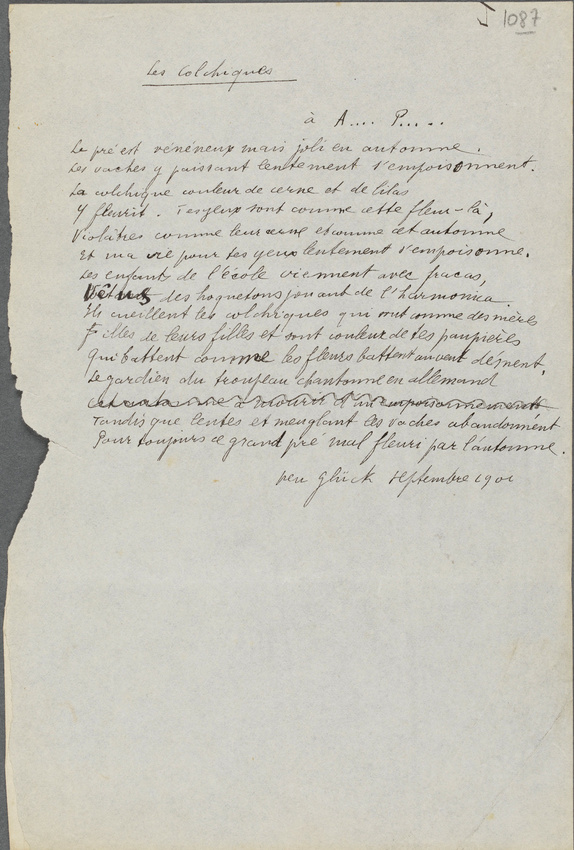 1087
Les Colchiques
à A.... P.....
Le pré est vénéneux mais joli en automne.
Les vaches y paissant lentement s'empoisonnent.
La colchique couleur de cerne et de lilas
Y fleurit. Tes yeux sont comme cette fleur-là,
Violâtres comme leur cerne et comme cet automne
Et ma vie pour tes yeux lentement s'empoisonne.
Les enfants de l'école viennent avec fracas,
Vêtus des hoquetons jouant de l'harmonica.
Ils cueillent les colchiques qui sont comme des mères
Filles de leurs filles et sont couleur de tes paupières
Qui battent comme les fleurs battent au vent dément,
Le gardien du troupeau chantonne en allemand
à mourir d'un empoisonnement
Tandis que lentes et meuglant les vaches abandonnent
Pour toujours ce grand pré mal fleuri par l'automne.
Neu Glück septembre 1901